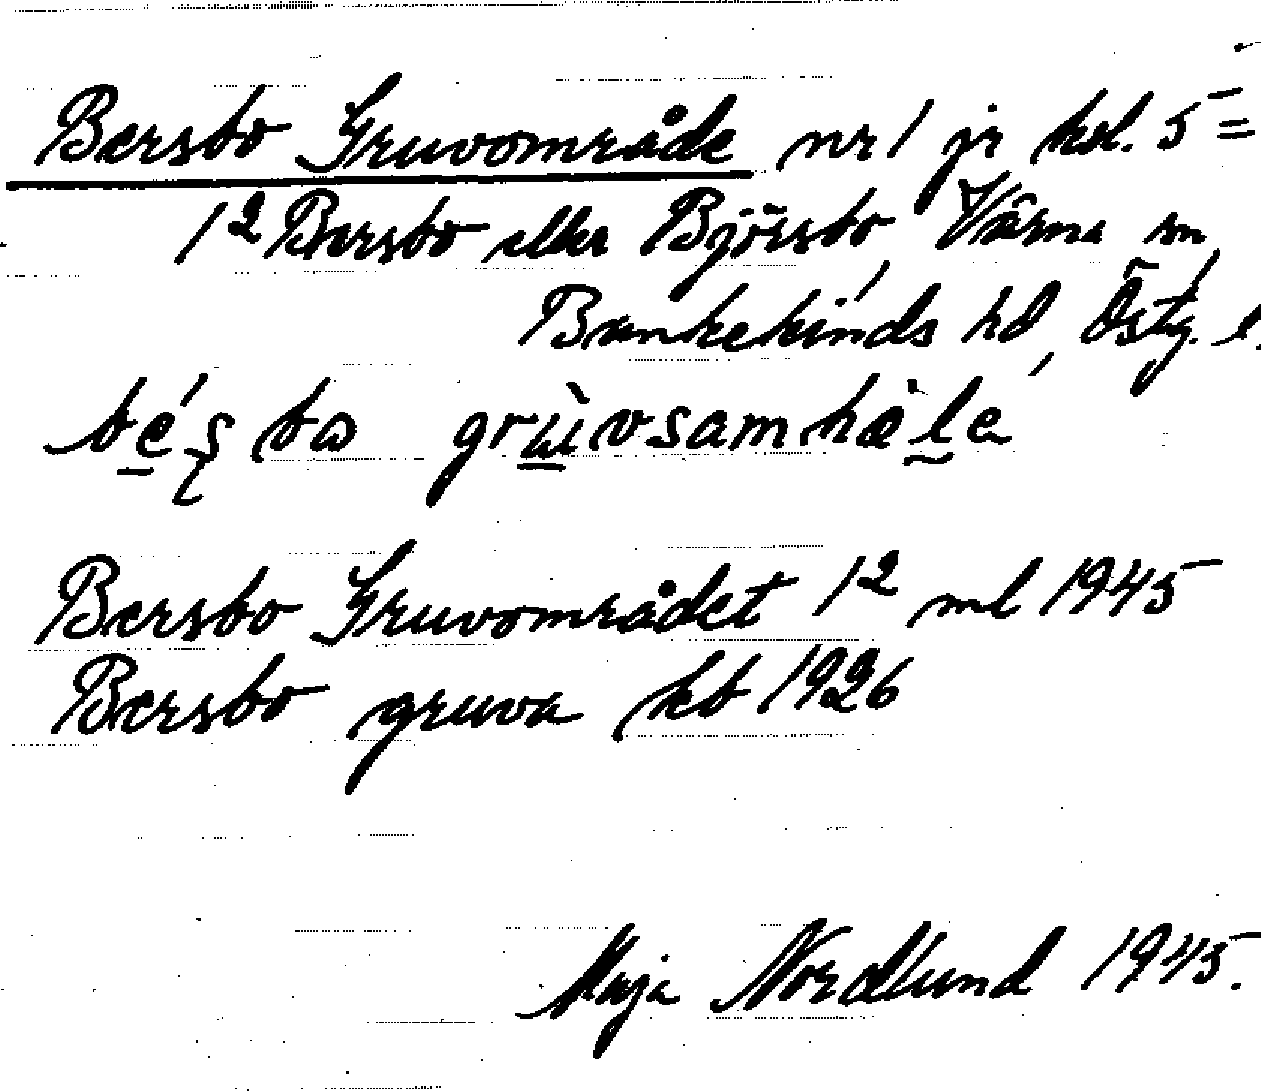 Bersbo Gruvområde nr 1 jr kol. 5 =
1² Bersbo eller Björsbo, Värna sn
Bankekinds hd, Östg. l.
Bersbo Gruvområdet 1² ml 1945
Bersbo gruva kb 1926
Maja Nordlund 1945.